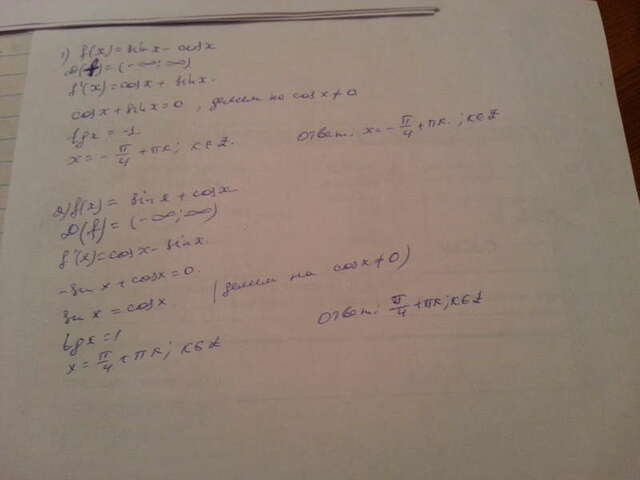 1) f(x)=sinx-cosx
D(f)=(-∞;∞)
f'(x)=cosx+sinx.
cosx+sinx=0, делим на cosx≠0
tgx=-1.
x=-π/4+πk; k∈Z. Ответ: x=-π/4+πk.; k∈Z
2) f(x)=sinx+cosx
D(f)=(-∞;∞)
f'(x)=cosx-sinx
-sinx+cosx=0.
sinx=cosx (делим на cosx≠0)
tgx=1
x=π/4+πk; k∈Z Ответ: π/4+πk; k∈Z